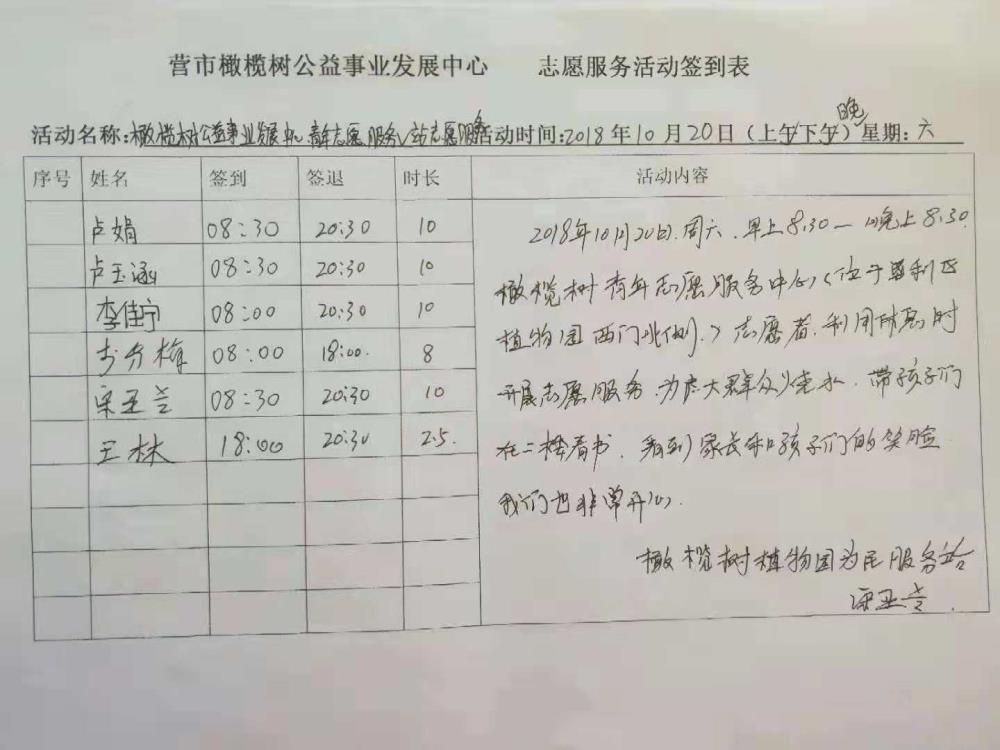 营市橄榄树公益事业发展中心 志愿服务活动签到表
活动名称:橄榄树公益事业发展中心青年志愿服务站志愿服务活动时间:2018年10月20日(上午/下午)晚 星期:六
序号 姓名 签到 签退 时长 活动内容
卢娟 08:30 20:30 10
卢玉涵 08:30 20:30 10
李佳宁 08:00 20:30 10
李分梅 08:00 18:00. 8
宋亚兰 08:30 20:30 10
王林 18:00 20:30 2.5.
2018年10月20日.周六.早上8:30—晚上8:30
橄榄树青年志愿服务中心(位于垦利区
植物园西门北侧.)志愿者.利用休息时
开展志愿服务.为广大群众烧水.带孩子们
在二楼看书.看到家长和孩子们的笑脸
我们也非常开心.
橄榄树植物园为民服务站
宋亚兰.